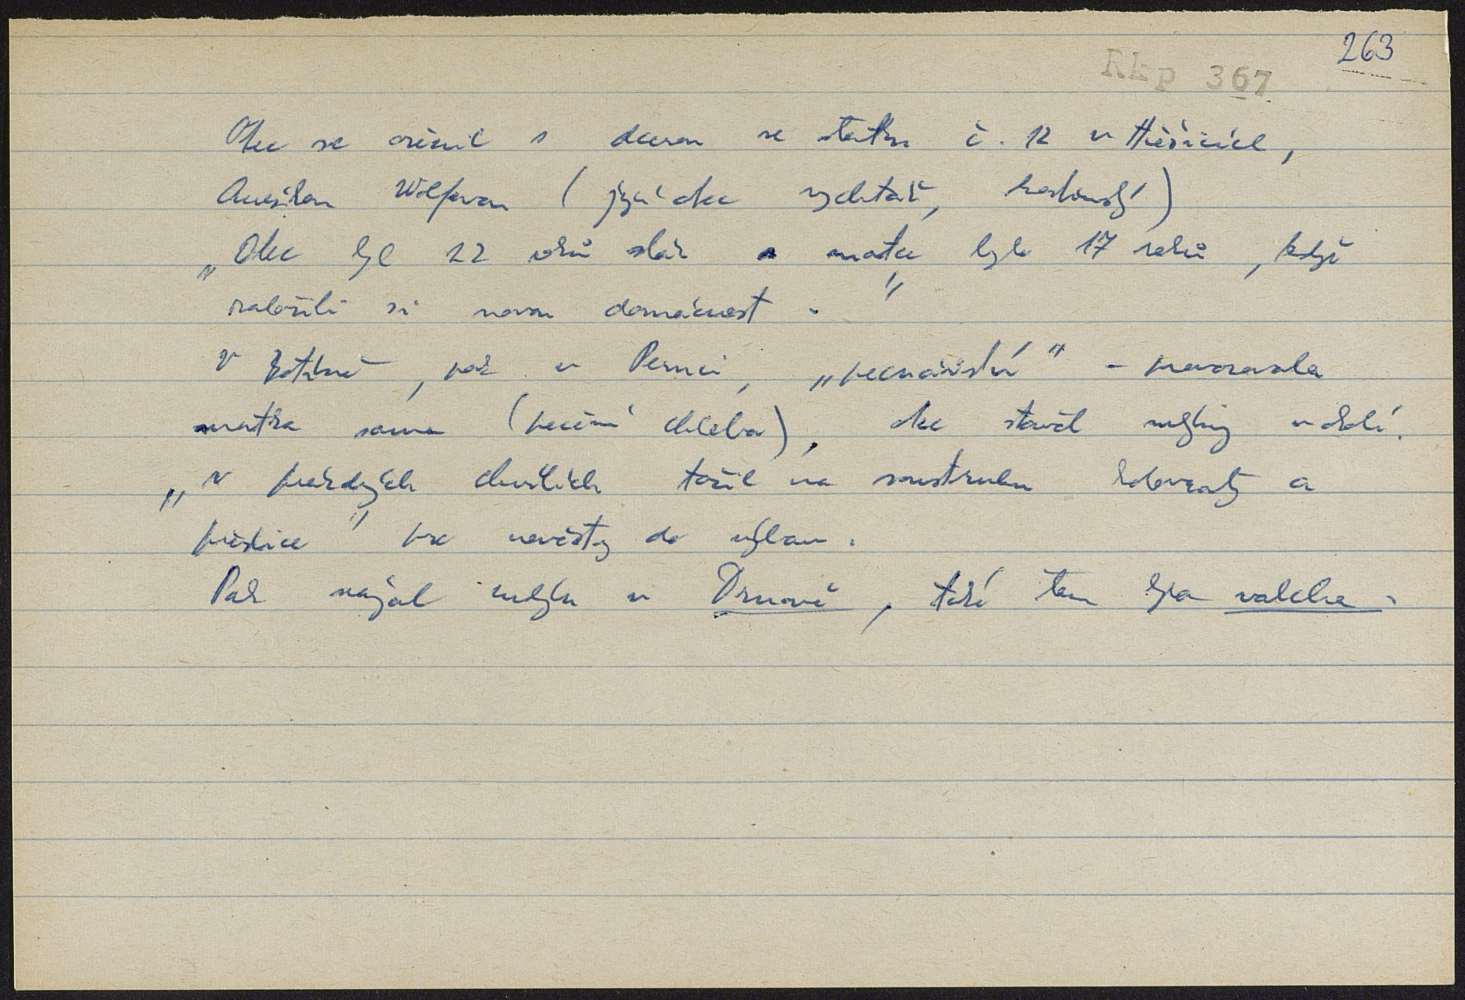 263
Rkp 367
Otec se oženil s dcerou ze statku č. 12 v Hněšicích,
Anežkou Wolfovou (její otec rychtář,
„Otec byl 22 roků stár a matce bylo 17 roků, když
založili si novou domácnost."
V, pak v Peruci, „pecnářství" - provozovala
matka sama (pečení chleba), otec stavěl mlýny v okolí.
„V prázdných chvílích točil na soustruhu kolovraty a
přeslice" pro nevěsty do výbavy.
Pak najal mlýn v Drnově, také tam byla valcha.